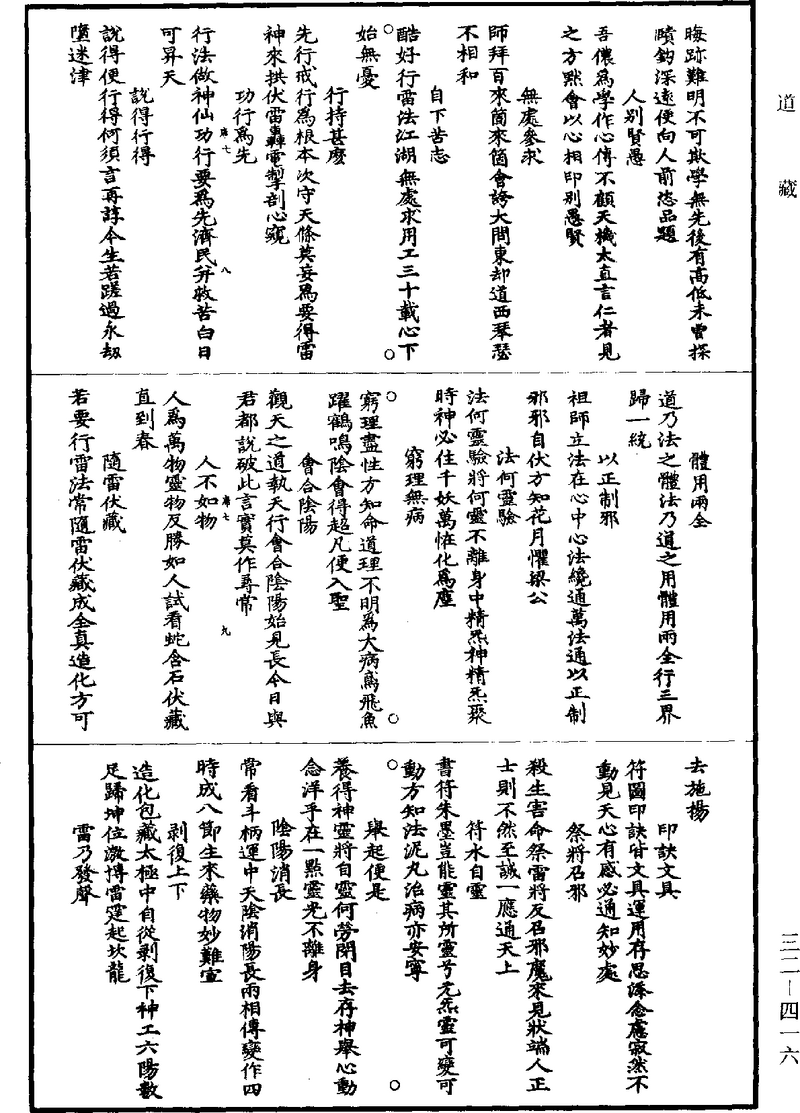 道藏
晦跡難明不可欺學無先後有高低未曾探
賾鈎深遠便向人前恣品題
人別賢愚
吾儂為學作心傳不顧天機太直言仁者見
之方黙會以心相印別愚賢
無處參求
師拜百來箇來箇會誇大問東却道西琴瑟
不相和
自下苦志
酷好行雷法江湖無處求用工三十載心下
始無憂
行持甚麽
先行戒行為根本次守天條莫妄為要得雷
神來拱伏雷轟電掣剖心窺
功行為先
行法做神仙功行要為先濟民并救苦白日
可昇天
席七
八
說得行得
說得便行得何須言再諄今生若蹉過永劫
墮迷津
體用兩全
道乃法之體法乃道之用體用兩全行三界
歸一統
以正制邪
祖師立法在心中心法纔通萬法通以正制
邪邪自伏方知花月懼梁公
法何靈驗
法何靈驗將何靈不離身中精炁神精炁聚
時神必住千妖萬怪化為塵
窮理無病
窮理盡性方知命道理不明為大病鳶飛魚
躍鶴鳴陰會得超凡便入聖
會合陰陽
觀天之道執天行會合陰陽始見長今日與
君都說破此言實莫作尋常
席七
九
人不如物
人為萬物靈物反勝如人試看蛇含石伏藏
直到春
隨雷伏藏
若要行雷法常隨雷伏藏成全真造化方可
去施揚
印訣文具
符圖印訣皆文具運用存思滌念慮寂然不
動見天心有感必通知妙處
祭將召邪
殺生害命祭雷將反召邪魔來見狀端人正
士則不然至誠一應通天上
符水自靈
書符朱墨豈能靈其所靈兮元炁靈可變可
動方知法泥丸治病亦安寧
舉起便是
養得神靈將自靈何勞閉目去存神舉心動
念洋乎在一點靈光不離身
陰陽消長
常看斗柄運中天陰消陽長兩相傳變作四
時成八節生來藥物妙難宣
剥復上下
造化包藏太極中自從剥復下种工六陽數
足歸坤位激搏雷霆起坎龍
雷乃發聲
三二—四一六